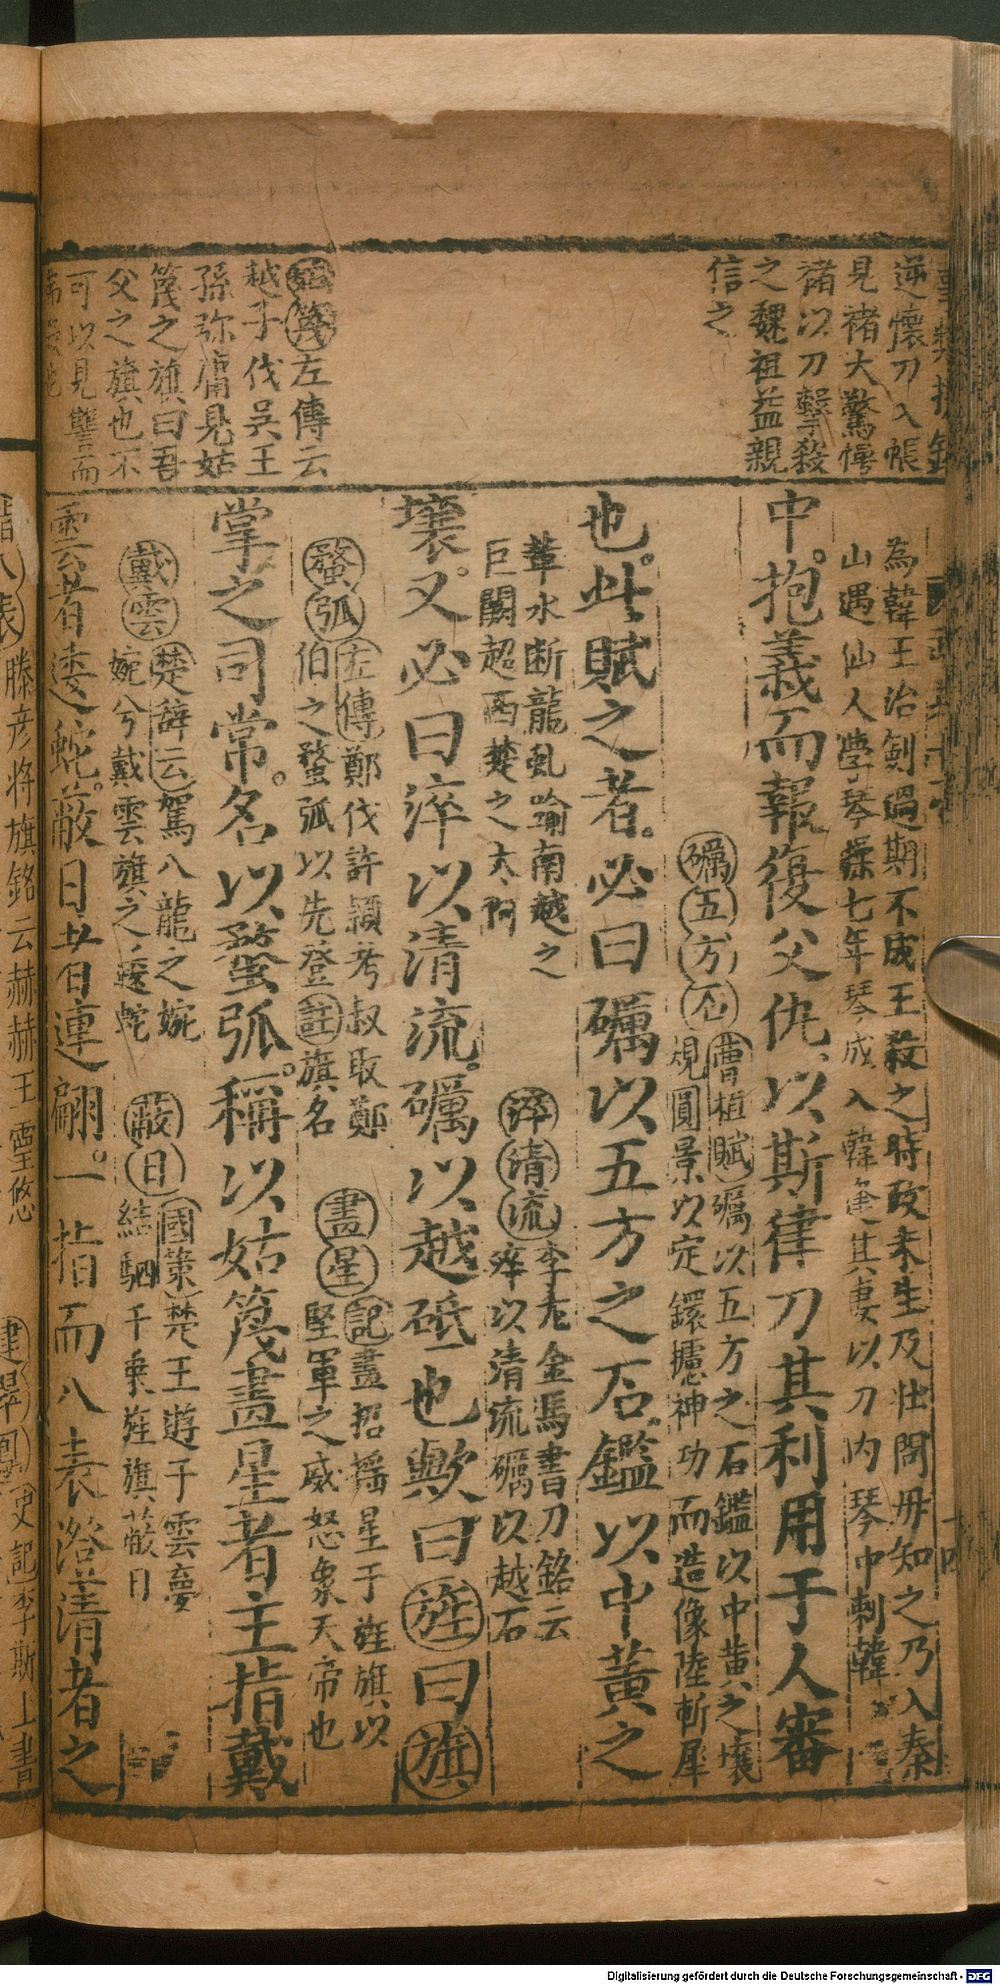 逆懷刀入帳
見褚大驚愕
褚以刀擊殺
之魏祖益親
信之
姑篾左傳云
越子伐吳王
孫弥庸見姑
篾之旗曰吾
父之旗也不
可以見讐而
為韓王治劍過期不成王殺之時政未生及壯問母知之乃入秦
山遇仙人學琴七年琴成入韓逢其妻以刀內琴中刺韓
中抱義而報復父仇以斯律刀其利用于人審
礪五方石曹植賦礪以五方之石鑑以中黃之壤
規圓景以定鐶攄神功而造像陸斬犀
也此賦之者必曰礪以五方之石鑑以中黃之
革水断龍虬踰南越之
巨闕超西楚之太阿
淬清流李尤金馬書刀銘云
淬以清流礪以越石
壤又必曰淬以清流礪以越砥也歟曰旌曰旗
蝥弧左傳鄭伐許頴考叔取鄭
伯之蝥弧以先登註旗名
畫星記畫招搖星于旌旗以
堅軍之威怒象天帝也
掌之司常名以蝥弧稱以姑篾畫星者主指戴
戴雲楚辞云駕八龍之婉
婉兮戴雲旗之逶蛇
蔽日國策楚王遊于雲夢
結駟千乗旌旗蔽日
雲者逶蛇蔽日者連翩一指而八表澄清者之
滕彦将旗銘云赫赫王靈悠
史記李斯上書
Digitalisierung gefördert durch die Deutsche Forschungsgemeinschaft - DFG